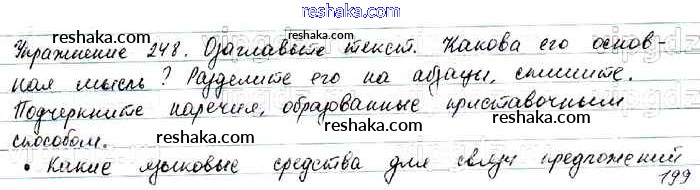 reshaka.com
Упражнение 248. Озаглавьте текст. Какова его основ-
ная мысль? Разделите его на абзацы, спишите.
Подчеркните наречия, образованные приставочным
способом.
• Какие языковые средства для связи предложений
199